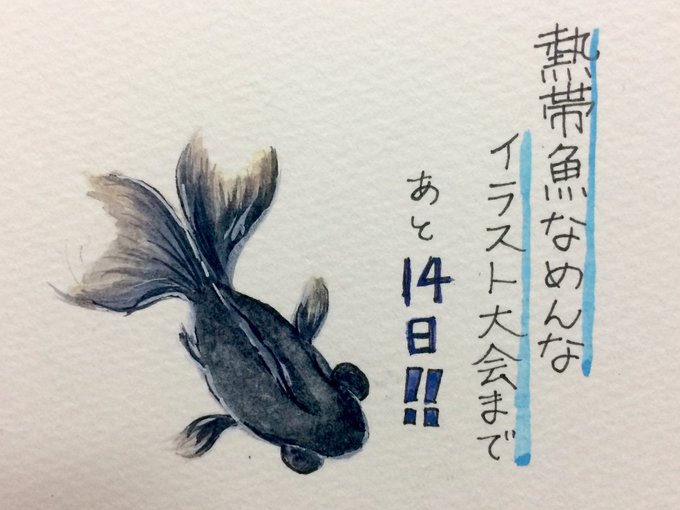 熱帯魚なめんな
イラスト大会まで
あと14日!!